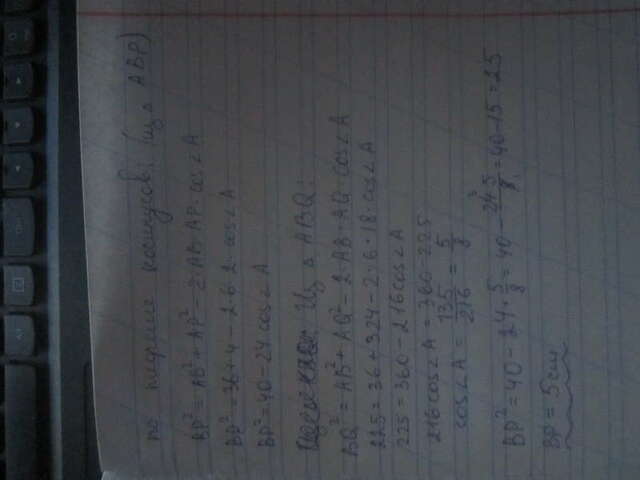 по теореме косинусов: (из △ ABP)
BP² = AB² + AP² - 2·AB·AP·cos∠A
BP² = 36 + 4 - 2·6·2·cos∠A
BP² = 40 - 24 cos∠A
Из △ ABQ:
BQ² = AB² + AQ² - 2·AB·AQ·cos∠A
225 = 36 + 324 - 2·6·18·cos∠A
225 = 360 - 216cos∠A
216cos∠A = 360-225
cos∠A = 135/216 = 5/8
BP² = 40 - 24·5/8 = 40 - 24³·5/8₁ = 40-15 = 25
BP = 5см